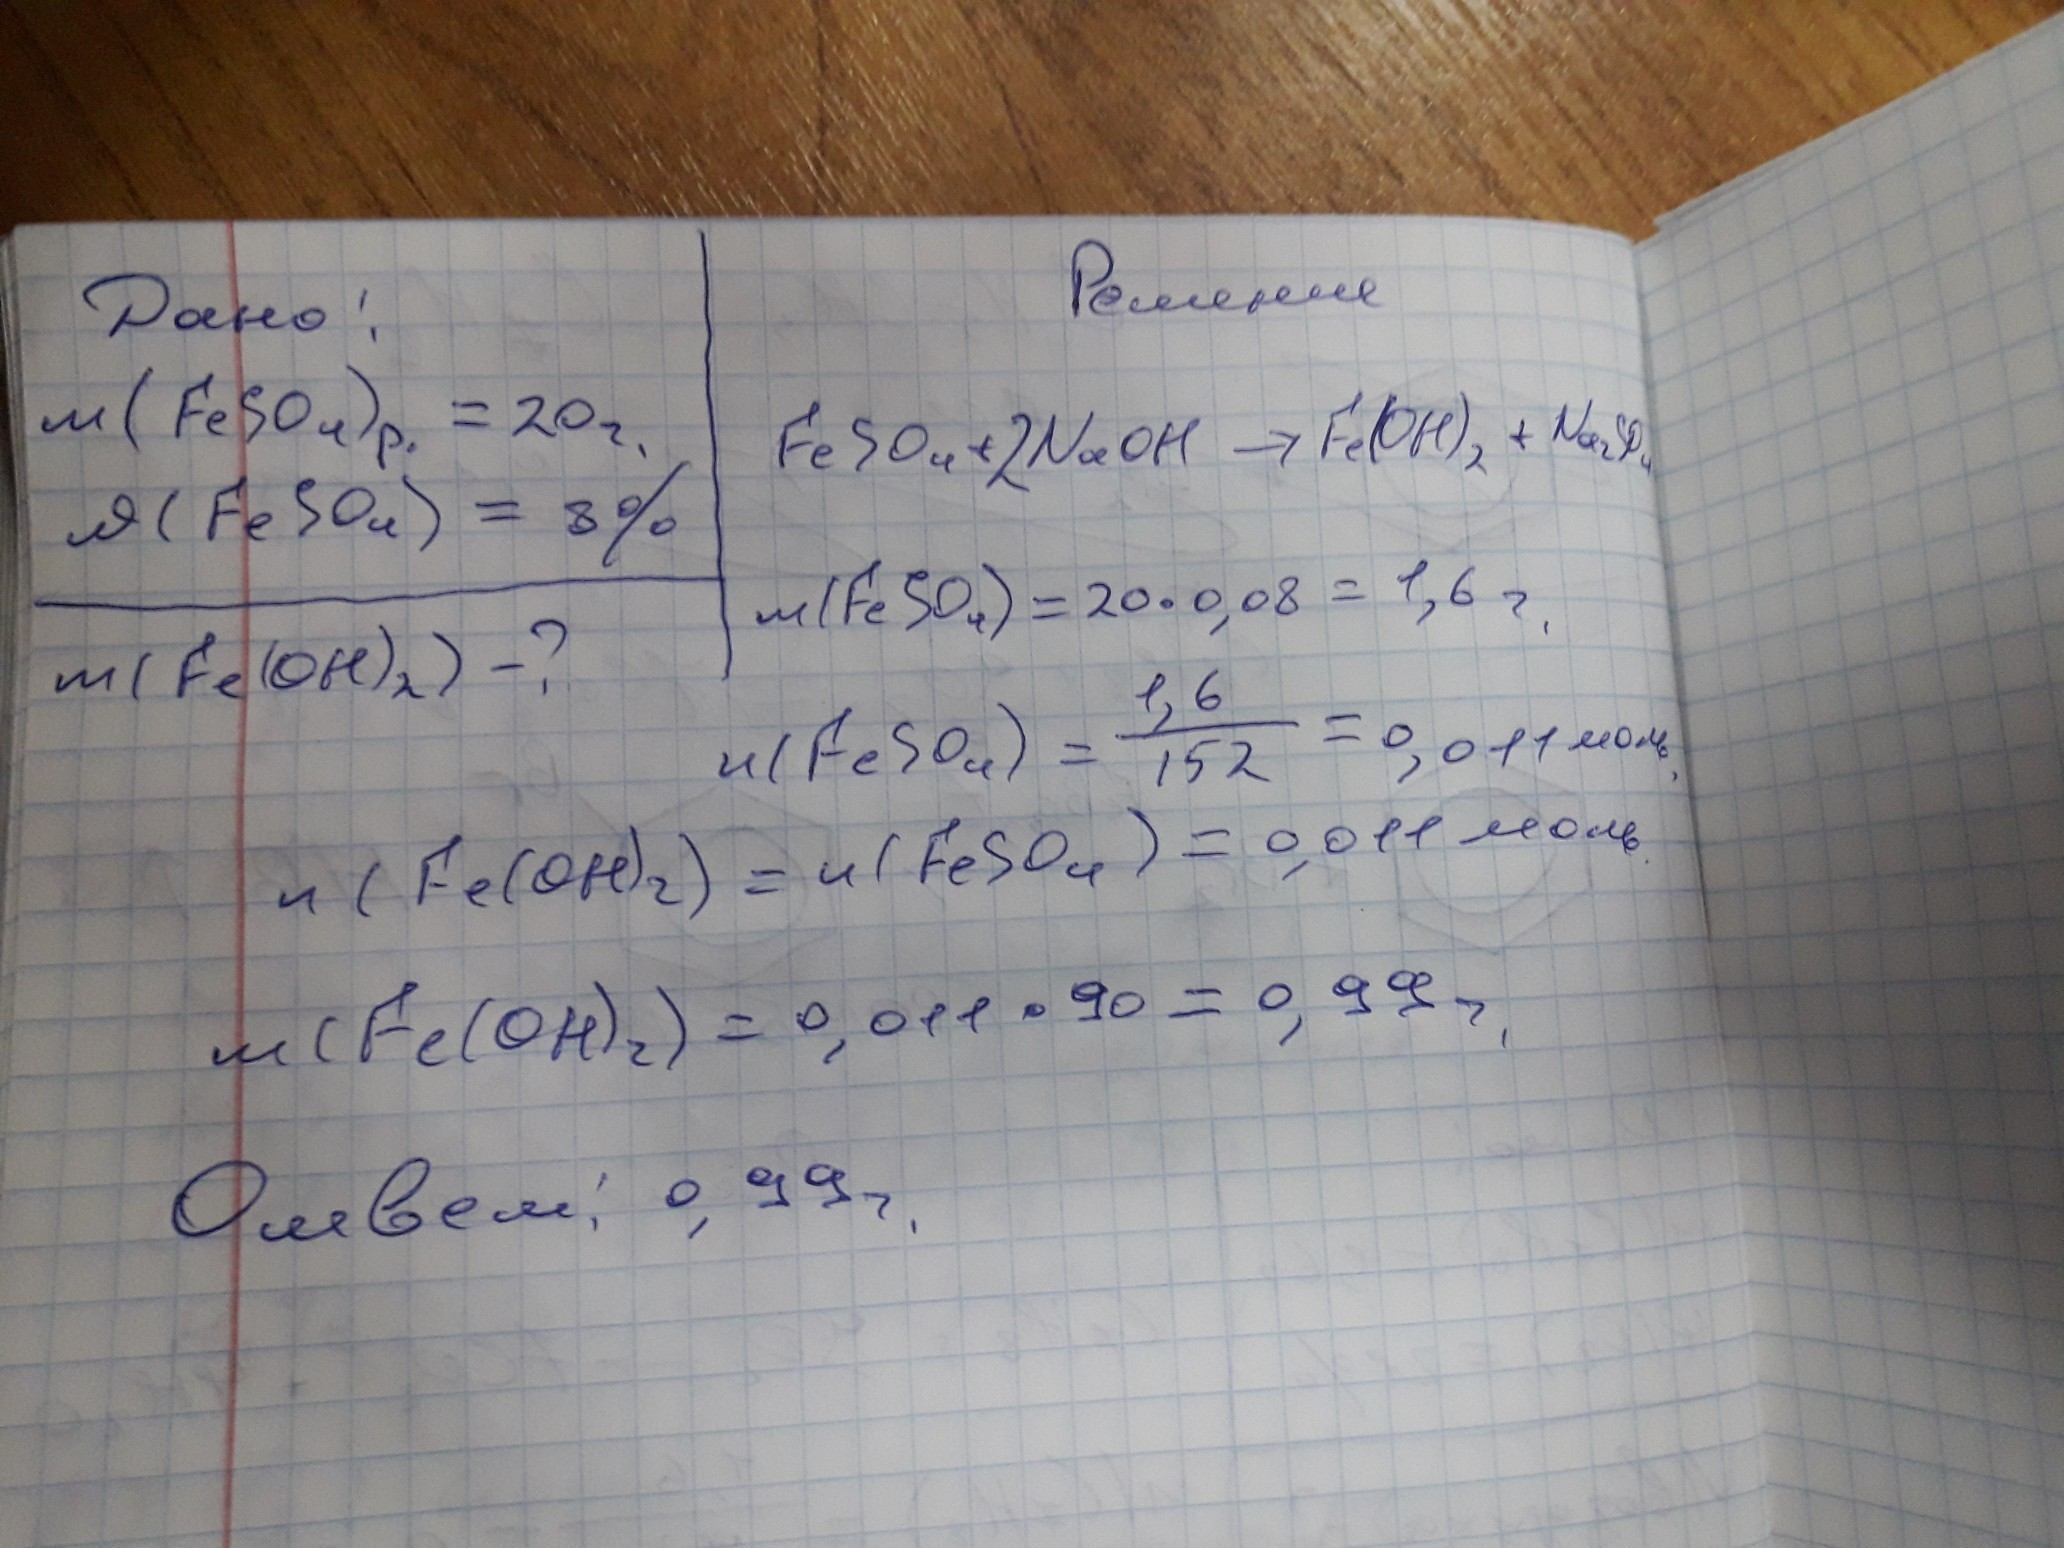 Дано:
m(FeSO₄)р. = 20г.
ω(FeSO₄) = 8%
m(Fe(OH)₂) - ?
Решение
FeSO₄ + 2NaOH → Fe(OH)₂ + Na₂SO₄
m(FeSO₄) = 20 • 0,08 = 1,6 г.
n(FeSO₄) = 1,6/152 = 0,011 моль.
n(Fe(OH)₂) = n(FeSO₄) = 0,011 моль.
m(Fe(OH)₂) = 0,011 • 90 = 0,99 г.
Ответ: 0,99г.